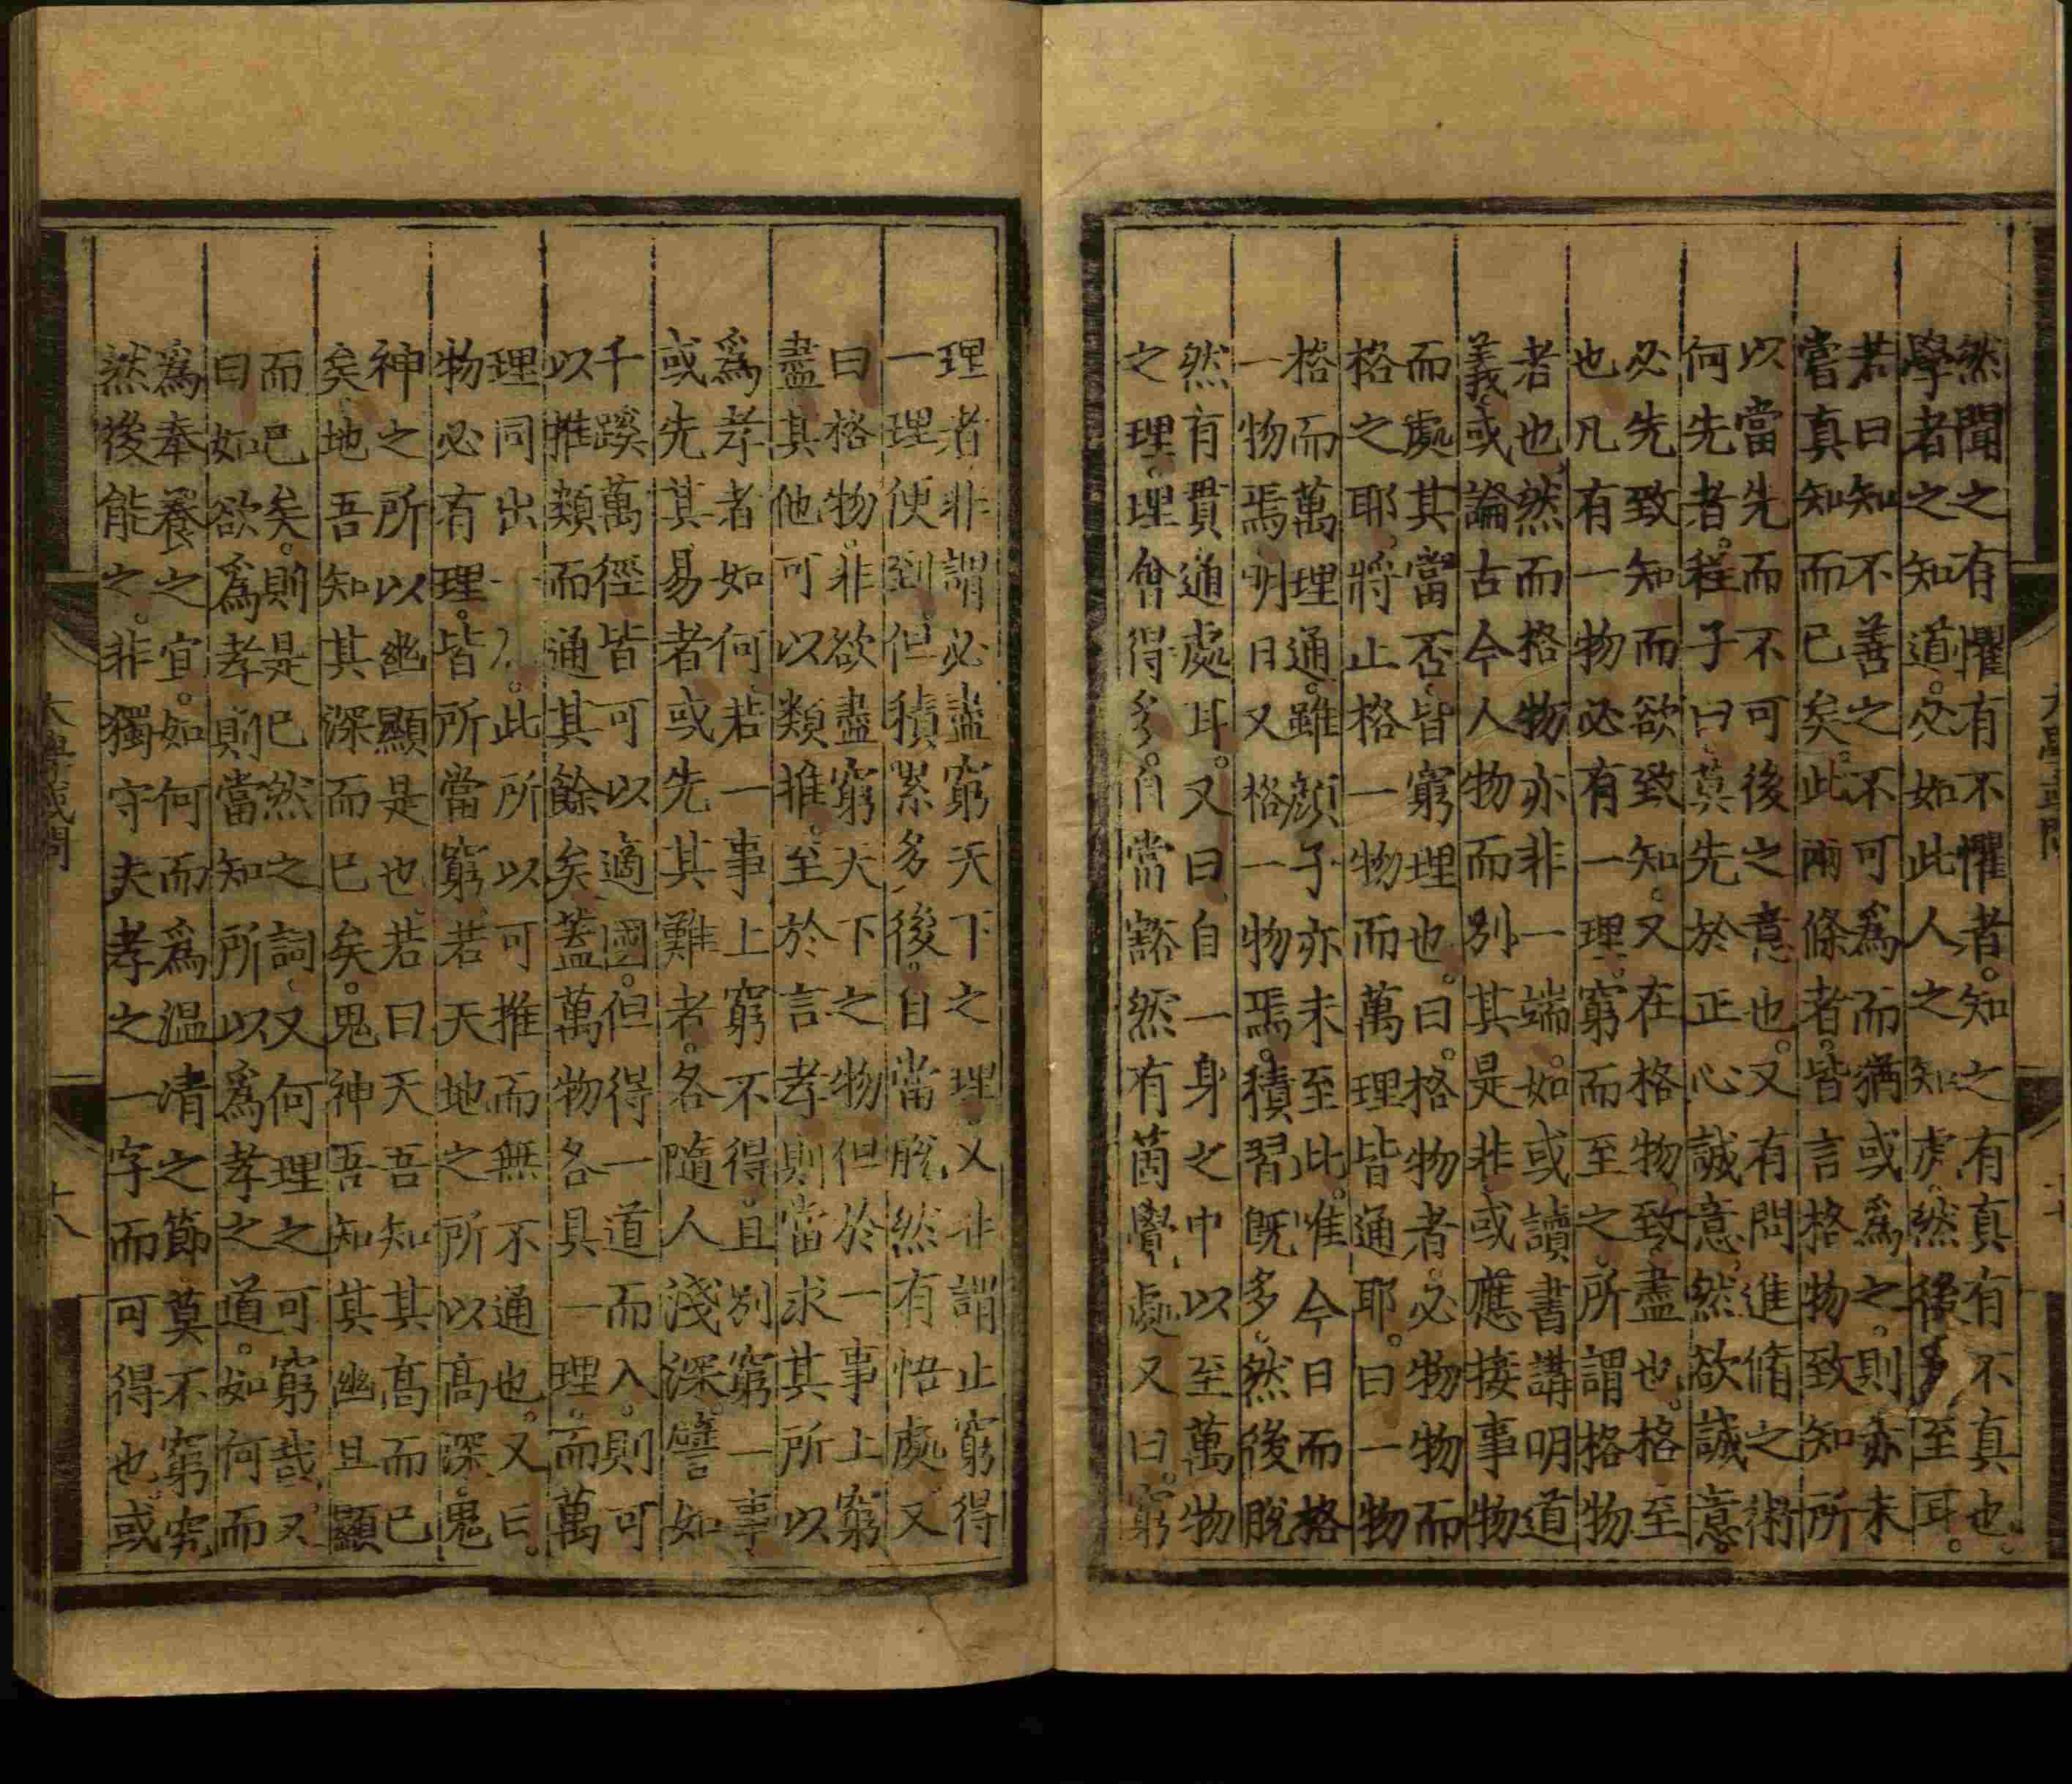 然聞之有懼有不懼者。知之有真有不真也。
學者之知道。必如此人之知虎。然後為至耳。
若曰知不善之不可爲而猶或爲之。則亦未
嘗真知而已矣。此兩條者。皆言格物致知所
以當先而不可後之意也。又有問進脩之術
何先者。程子曰。莫先於正心誠意。然欲誠意。
必先致知。而欲致知。又在格物。致盡也。格至
也。凡有一物。必有一理。窮而至之。所謂格物
者也。然而格物亦非一端。如或讀書講明道
義。或論古今人物而別其是非。或應接事物
而處其當否。皆窮理也。曰。格物者。必物物而
格之耶。將止格一物而萬理皆通耶。曰。一物
格而萬理通。雖顔子亦未至此。惟今日而格
一物焉。明日又格一物焉。積習既多。然後脫
然有貫通處耳。又曰。自一身之中。以至萬物
之理。理會得多。自當豁然有箇覺處。又曰。窮
理者。非謂必盡窮天下之理。又非謂止窮得
一理便到。但積累多後。自當脫然有悟處。又
曰。格物。非欲盡窮天下之物。但於一事上窮
盡。其他可以類推。至於言孝。則當求其所以
爲孝者如何。若一事上窮不得。且別窮一事。
或先其易者。或先其難者。各隨人淺深。譬如
千蹊萬徑。皆可以適國。但得一道而入。則可
以推類而通其餘矣。蓋萬物各具一理。而萬
理同出一。此所以可推而無不通也。又曰。
物必有理。皆所當窮。若天地之所以高深。鬼
神之所以幽顯是也。若曰天吾知其高而已
矣。地吾知其深而已矣。鬼神吾知其幽且顯
而已矣。則是已然之詞。又何理之可窮哉。又
曰。如欲爲孝。則當知所以爲孝之道。如何而
爲奉養之宜。如何而爲温凊之節。莫不窮究
然後能之。非獨守夫孝之一字而可得也。或
大學或問
十八